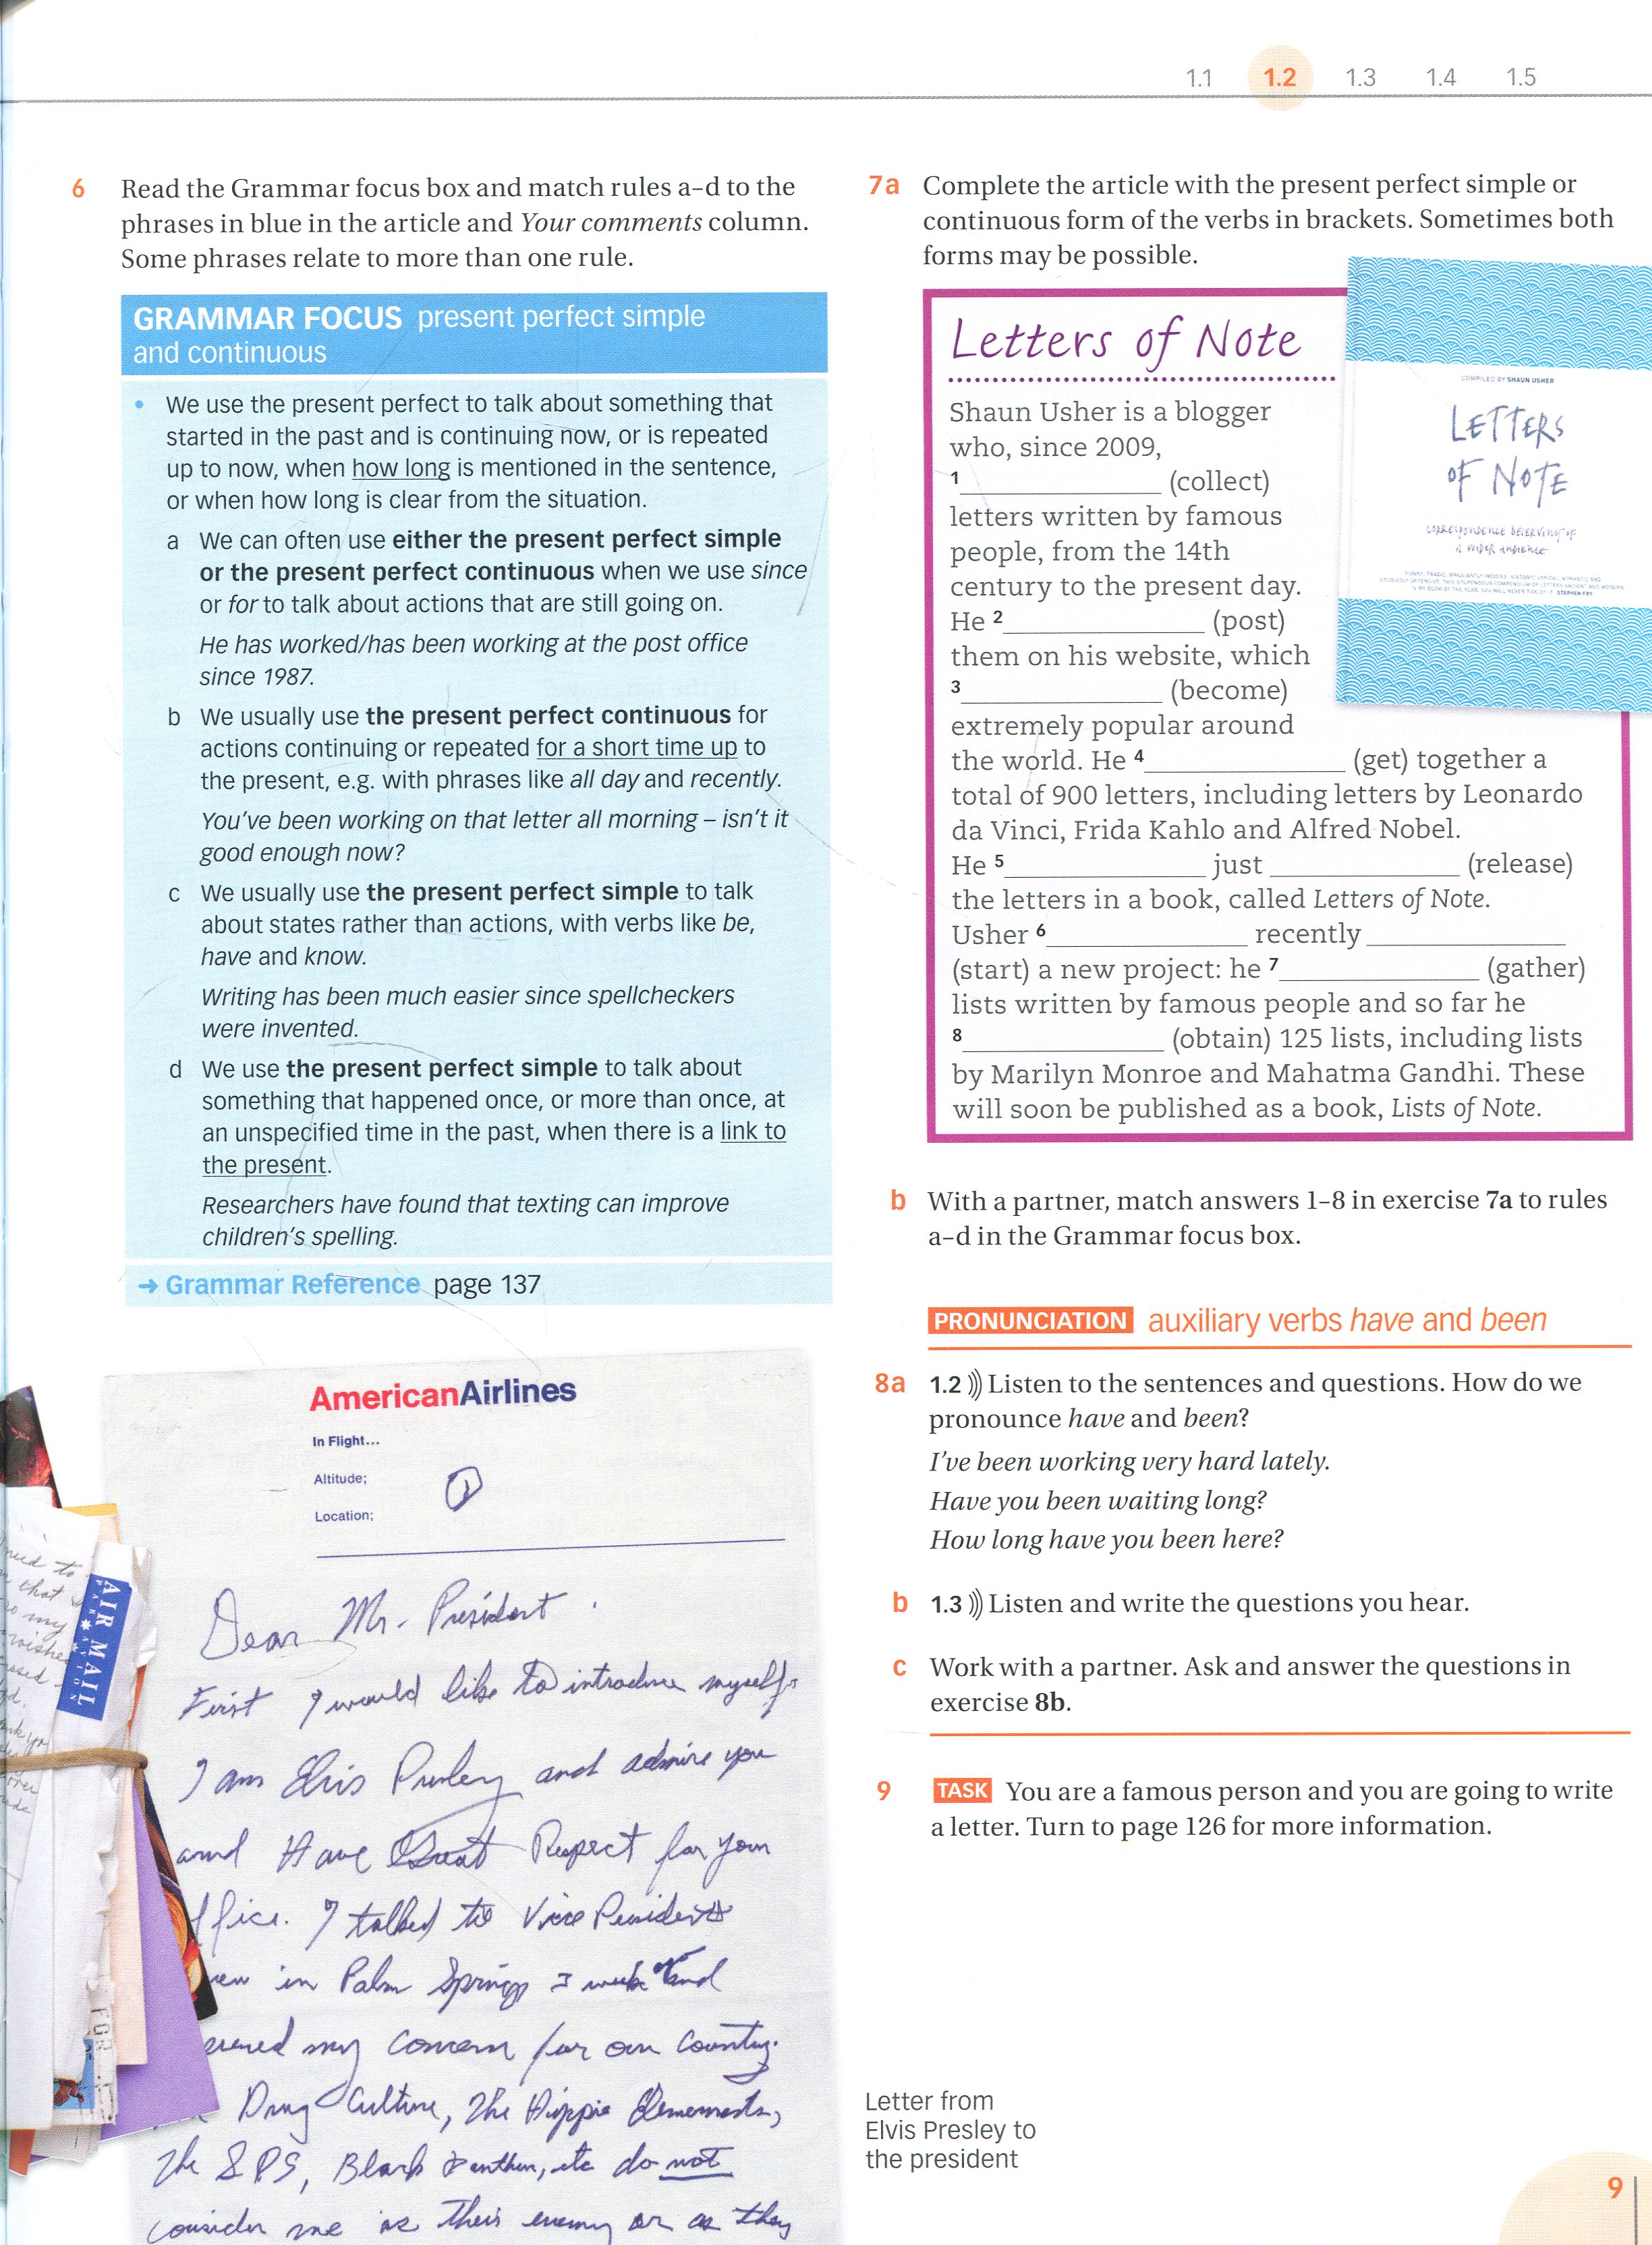 1.1 1.2 1.3 1.4 1.5
6 Read the Grammar focus box and match rules a–d to the
phrases in blue in the article and Your comments column.
Some phrases relate to more than one rule.
GRAMMAR FOCUS present perfect simple
and continuous
• We use the present perfect to talk about something that
started in the past and is continuing now, or is repeated
up to now, when how long is mentioned in the sentence,
or when how long is clear from the situation.
a We can often use either the present perfect simple
or the present perfect continuous when we use since
or for to talk about actions that are still going on.
He has worked/has been working at the post office
since 1987.
b We usually use the present perfect continuous for
actions continuing or repeated for a short time up to
the present, e.g. with phrases like all day and recently.
You've been working on that letter all morning – isn't it
good enough now?
c We usually use the present perfect simple to talk
about states rather than actions, with verbs like be,
have and know.
Writing has been much easier since spellcheckers
were invented.
d We use the present perfect simple to talk about
something that happened once, or more than once, at
an unspecified time in the past, when there is a link to
the present.
Researchers have found that texting can improve
children's spelling.
→ Grammar Reference page 137
AmericanAirlines
In Flight...
Altitude;
Location;
1
Dear Mr. President.
First I would like to introduce myself.
I am Elvis Presley and admire you
and Have Great Respect for your
ffice. I talked to Vice President
new in Palm Springs 3 weeks and
my concern for our country.
Drug Culture, The Hippie Elements,
The SDS, Black Panthers, etc do not
consider me as their enemy or as they
AIR MAIL
PAR AVION
need to
that
so my
7a Complete the article with the present perfect simple or
continuous form of the verbs in brackets. Sometimes both
forms may be possible.
Letters of Note
Shaun Usher is a blogger
who, since 2009,
1 ____________ (collect)
letters written by famous
people, from the 14th
century to the present day.
He 2 ____________ (post)
them on his website, which
3 ____________ (become)
extremely popular around
the world. He 4 ____________ (get) together a
total of 900 letters, including letters by Leonardo
da Vinci, Frida Kahlo and Alfred Nobel.
He 5 ____________ just ____________ (release)
the letters in a book, called Letters of Note.
Usher 6 ____________ recently ____________
(start) a new project: he 7 ____________ (gather)
lists written by famous people and so far he
8 ____________ (obtain) 125 lists, including lists
by Marilyn Monroe and Mahatma Gandhi. These
will soon be published as a book, Lists of Note.
COMPILED BY SHAUN USHER
LETTERS
OF NOTE
CORRESPONDENCE DESERVING OF
A WIDER AUDIENCE
STEPHEN FRY
b With a partner, match answers 1–8 in exercise 7a to rules
a–d in the Grammar focus box.
PRONUNCIATION auxiliary verbs have and been
8a 1.2 Listen to the sentences and questions. How do we
pronounce have and been?
I've been working very hard lately.
Have you been waiting long?
How long have you been here?
b 1.3 Listen and write the questions you hear.
c Work with a partner. Ask and answer the questions in
exercise 8b.
9 TASK You are a famous person and you are going to write
a letter. Turn to page 126 for more information.
Letter from
Elvis Presley to
the president
9